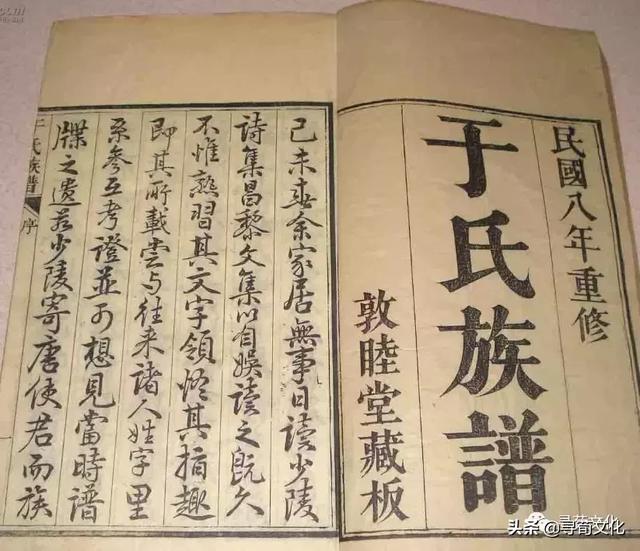 民國八年重修
于氏族譜
敦睦堂藏板
己未春余家居無事日讀少陵
詩集昌黎文集以自娛讀之既久
不惟熟習其文字領悟其指趣
即其所載嘗与往來諸人姓字里
系參互考證並可想見當時譜
牒之遺若少陵寄唐使君而族
于氏族譜
序
寻荀文化
头条 @寻荀文化